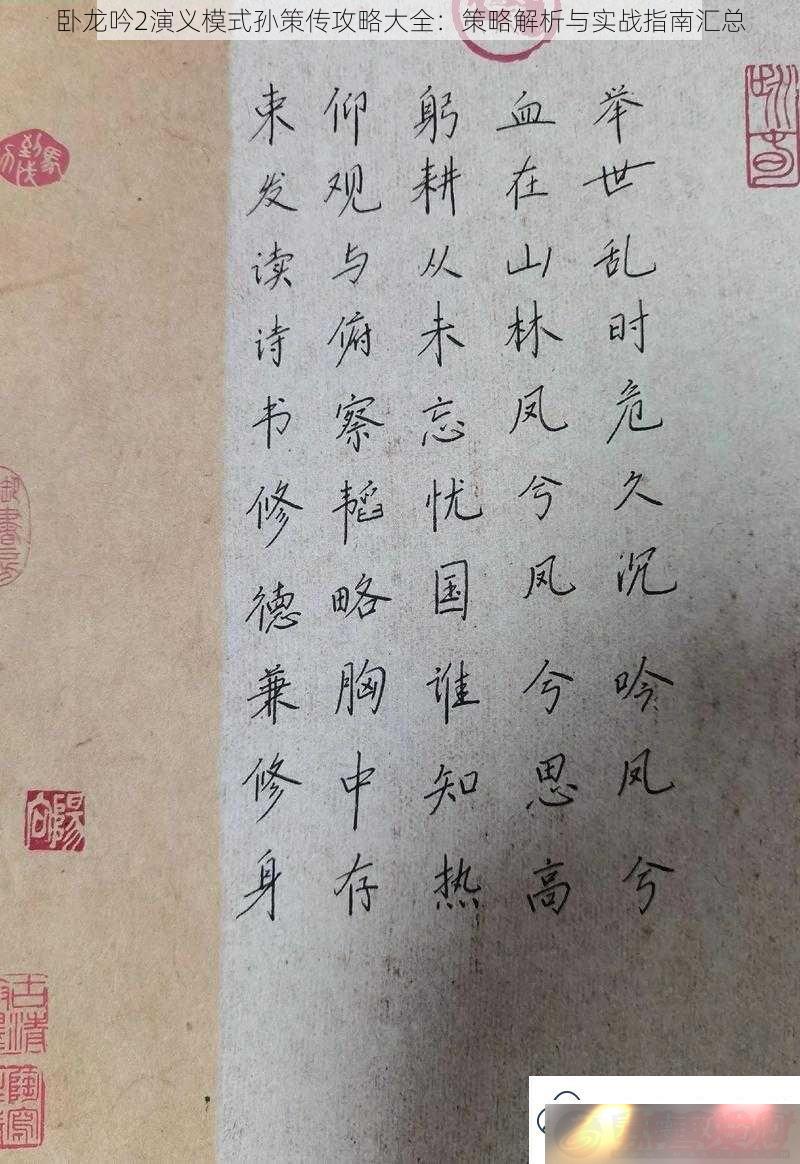 卧龙吟2演义模式孙策传攻略大全：策略解析与实战指南汇总
束发读诗书修德兼修身
仰观与俯察韬略胸中存
躬耕从未忘忧国谁知热
血在山林凤兮凤兮思高
举世乱时危久沉吟凤兮